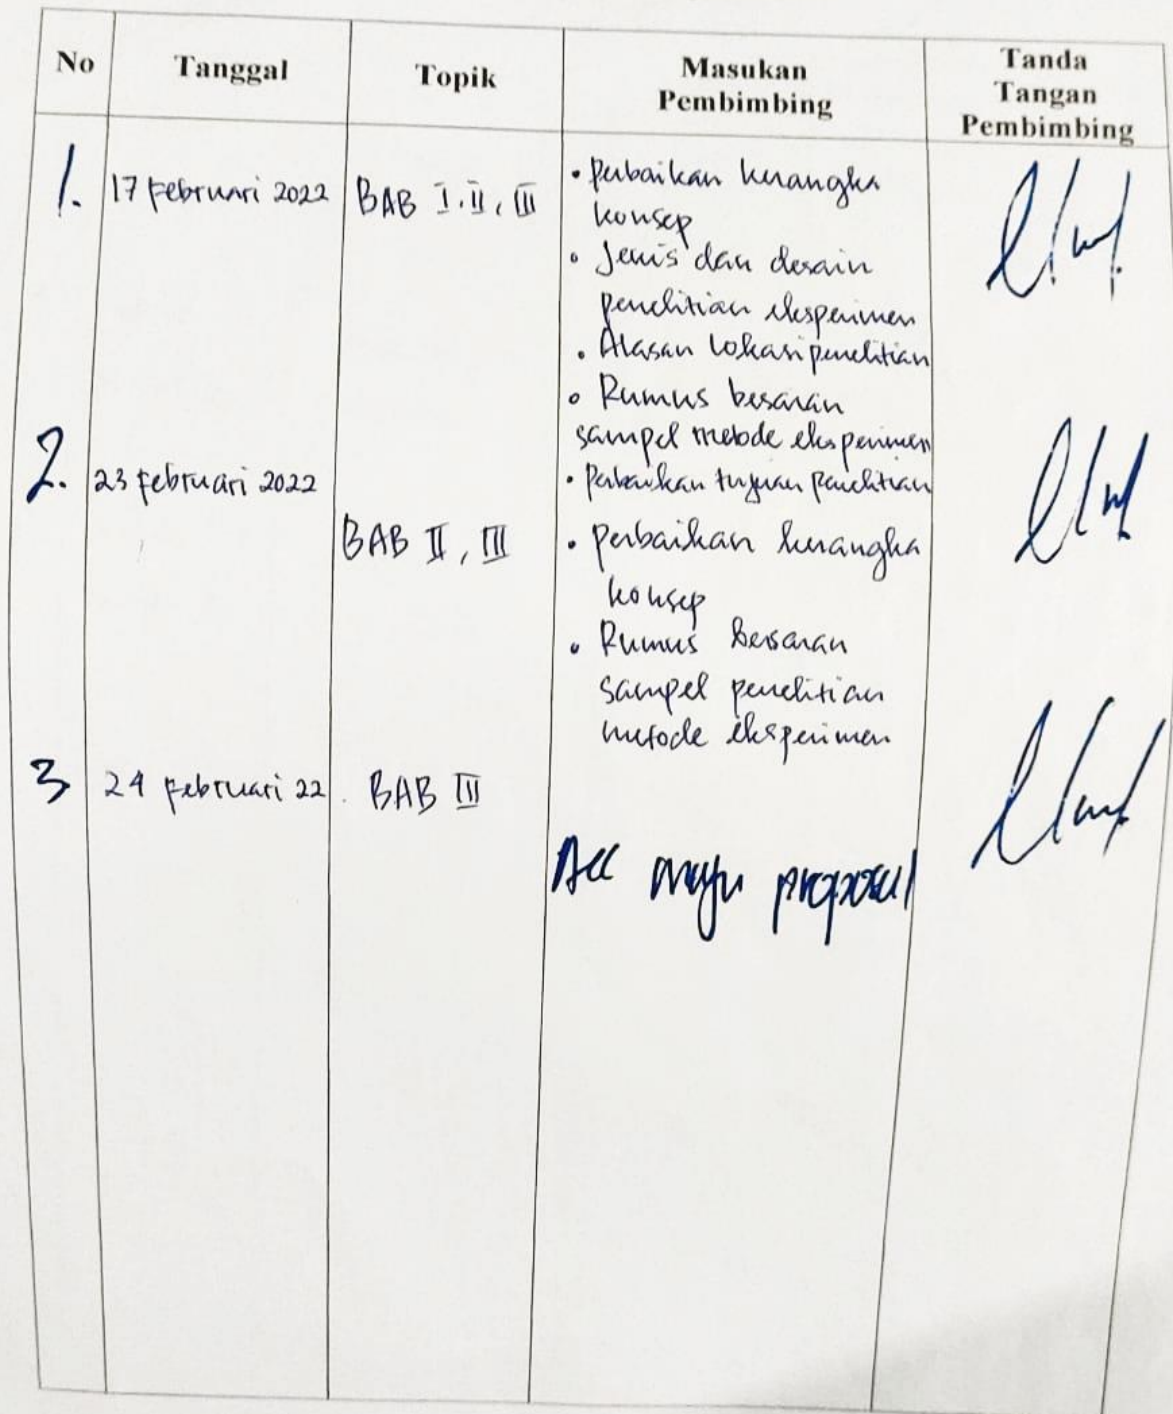 No Tanggal Topik Masukan Pembimbing Tanda Tangan Pembimbing
1. 17 Februari 2022 BAB I, II, III • Perbaikan kerangka
konsep
• Jenis dan desain
penelitian eksperimen
• Alasan lokasi penelitian
• Rumus besaran
sampel metode eksperimen
2. 23 Februari 2022 • Perbaikan tujuan penelitian
BAB II, III • perbaikan kerangka
konsep
• Rumus besaran
sampel penelitian
metode eksperimen
3 24 Februari 22 BAB III
Acc maju proposal